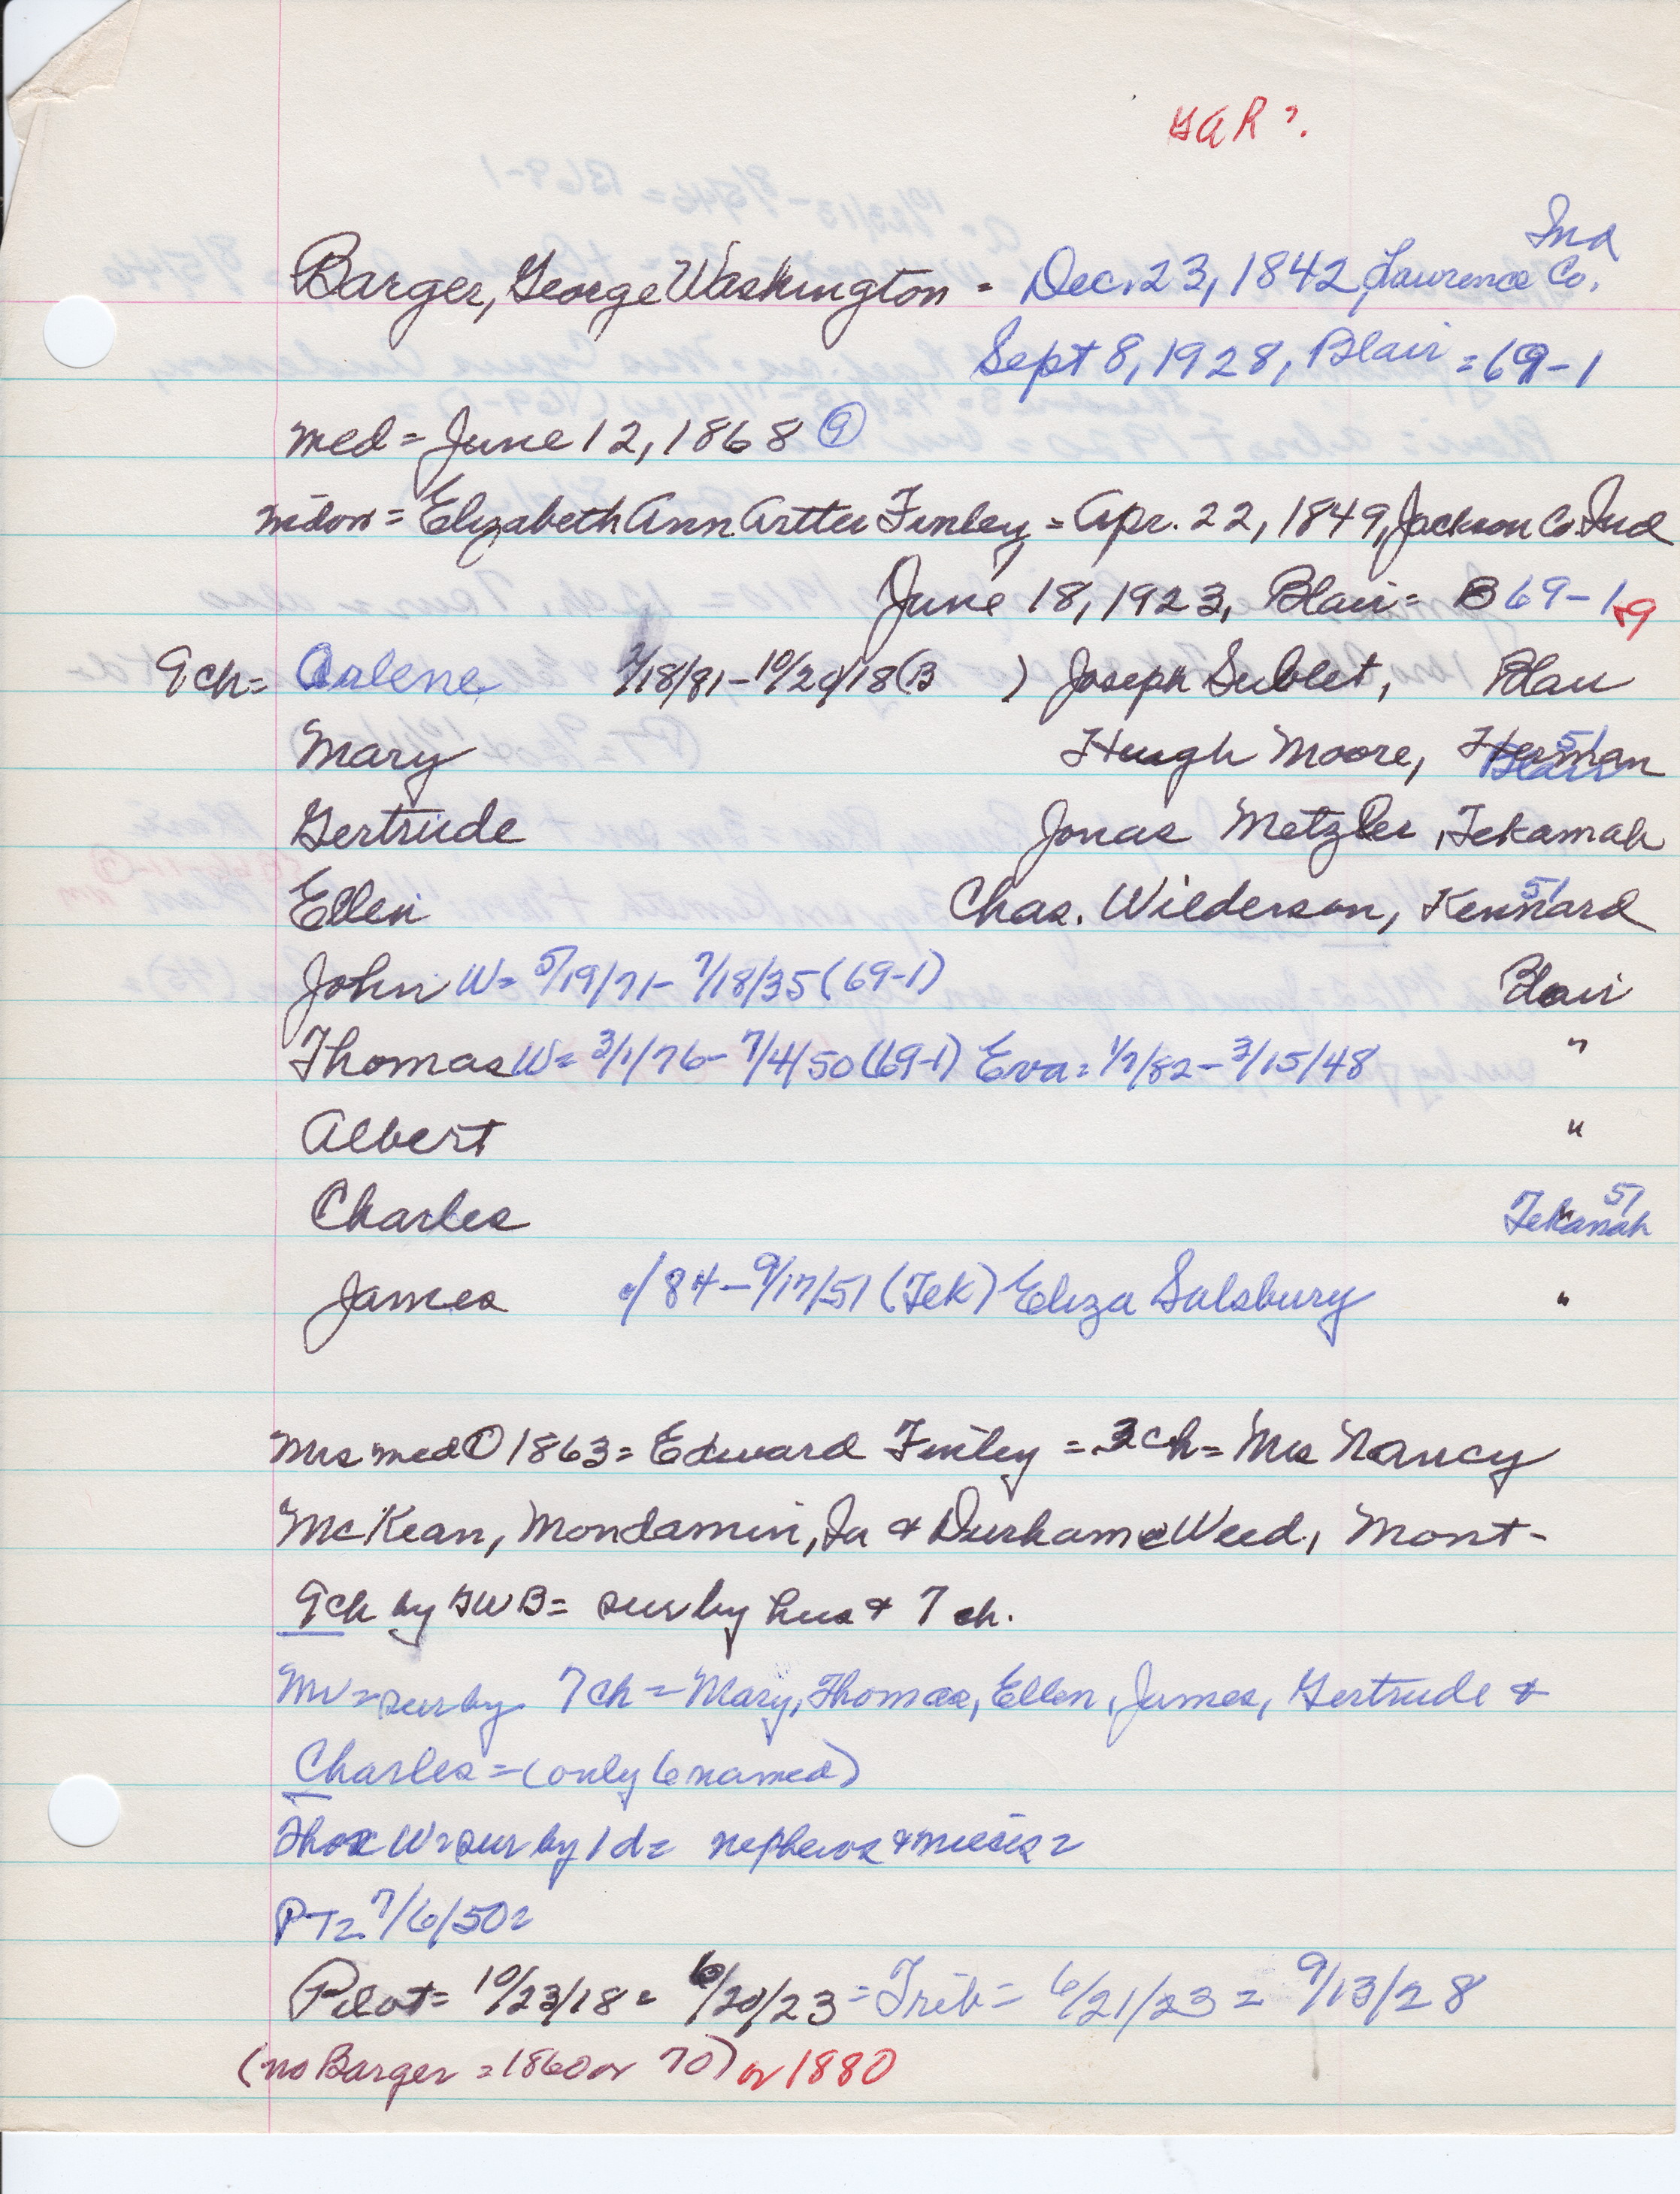 GAR ?.
Ind
Barger, George Washington - Dec. 23, 1842, Lawrence Co.
Sept 8, 1928, Blair = 69-1
med = June 12, 1868 9
= Elizabeth Ann Artter Finley = Apr. 22, 1849, Jackson Co. Ind
June 18, 1923, Blair = B 69-1
9 ch = Arlene 2/18/81 - 10/20/18 (B ) Joseph Sublet, Blair
Mary Hugh Moore, Herman Blair 51
Gertrude Jonas Metzler, Tekamah
Ellen Chas. Wilderson, Kennard 51
John W = 5/19/71 - 7/18/35 (69-1) Blair
Thomas W = 3/1/76 - 7/4/50 (69-1) Eva = 1/7/82 - 3/15/48 "
Albert "
Charles " Tekamah 51
James /84 - 9/17/51 (Tek) Eliza Salsbury "
Mrs med 1 1863 = Edward Finley = 3 ch = Mrs Nancy
McKean, Mondamin, Ia & Durham Weed, Mont -
9 ch by GWB = sur by hus & 7 ch.
Mr = sur by 7 ch = Mary, Thomas, Ellen, James, Gertrude &
Charles = (only 6 named)
Thos W = sur by 1 d = nephews & nieces =
PT = 7/6/50 =
Pilot = 10/23/18 = 6/20/23 = Trib = 6/21/23 = 9/13/28
(no Barger = 1860 or 70) or 1880